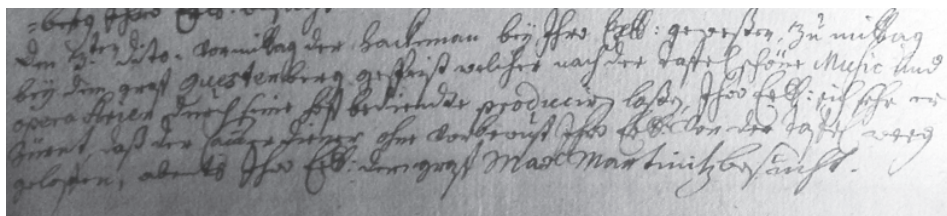 -berg Ihro Exll:
Den 3.ten dito. Vormittag der Hackeman beÿ Ihro Exll: geweßen, zu mittag
beÿ dem graf Questenberg gespeist welcher nach der taffel schöne Music und
opera durch seine hoff bediendte producirn laßen, Ihro Exll: sich sehr er
zürnt, daß der Cammerdiener ohne vorbewust Ihro Exll: von der taffel weeg
geloffen, abents Ihro Exll: den graf Max Martinitz besucht.